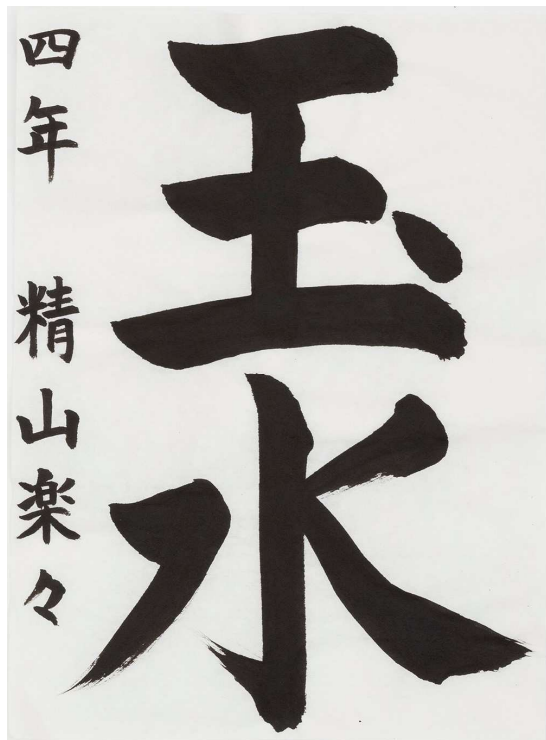 玉水
四年 精山楽々